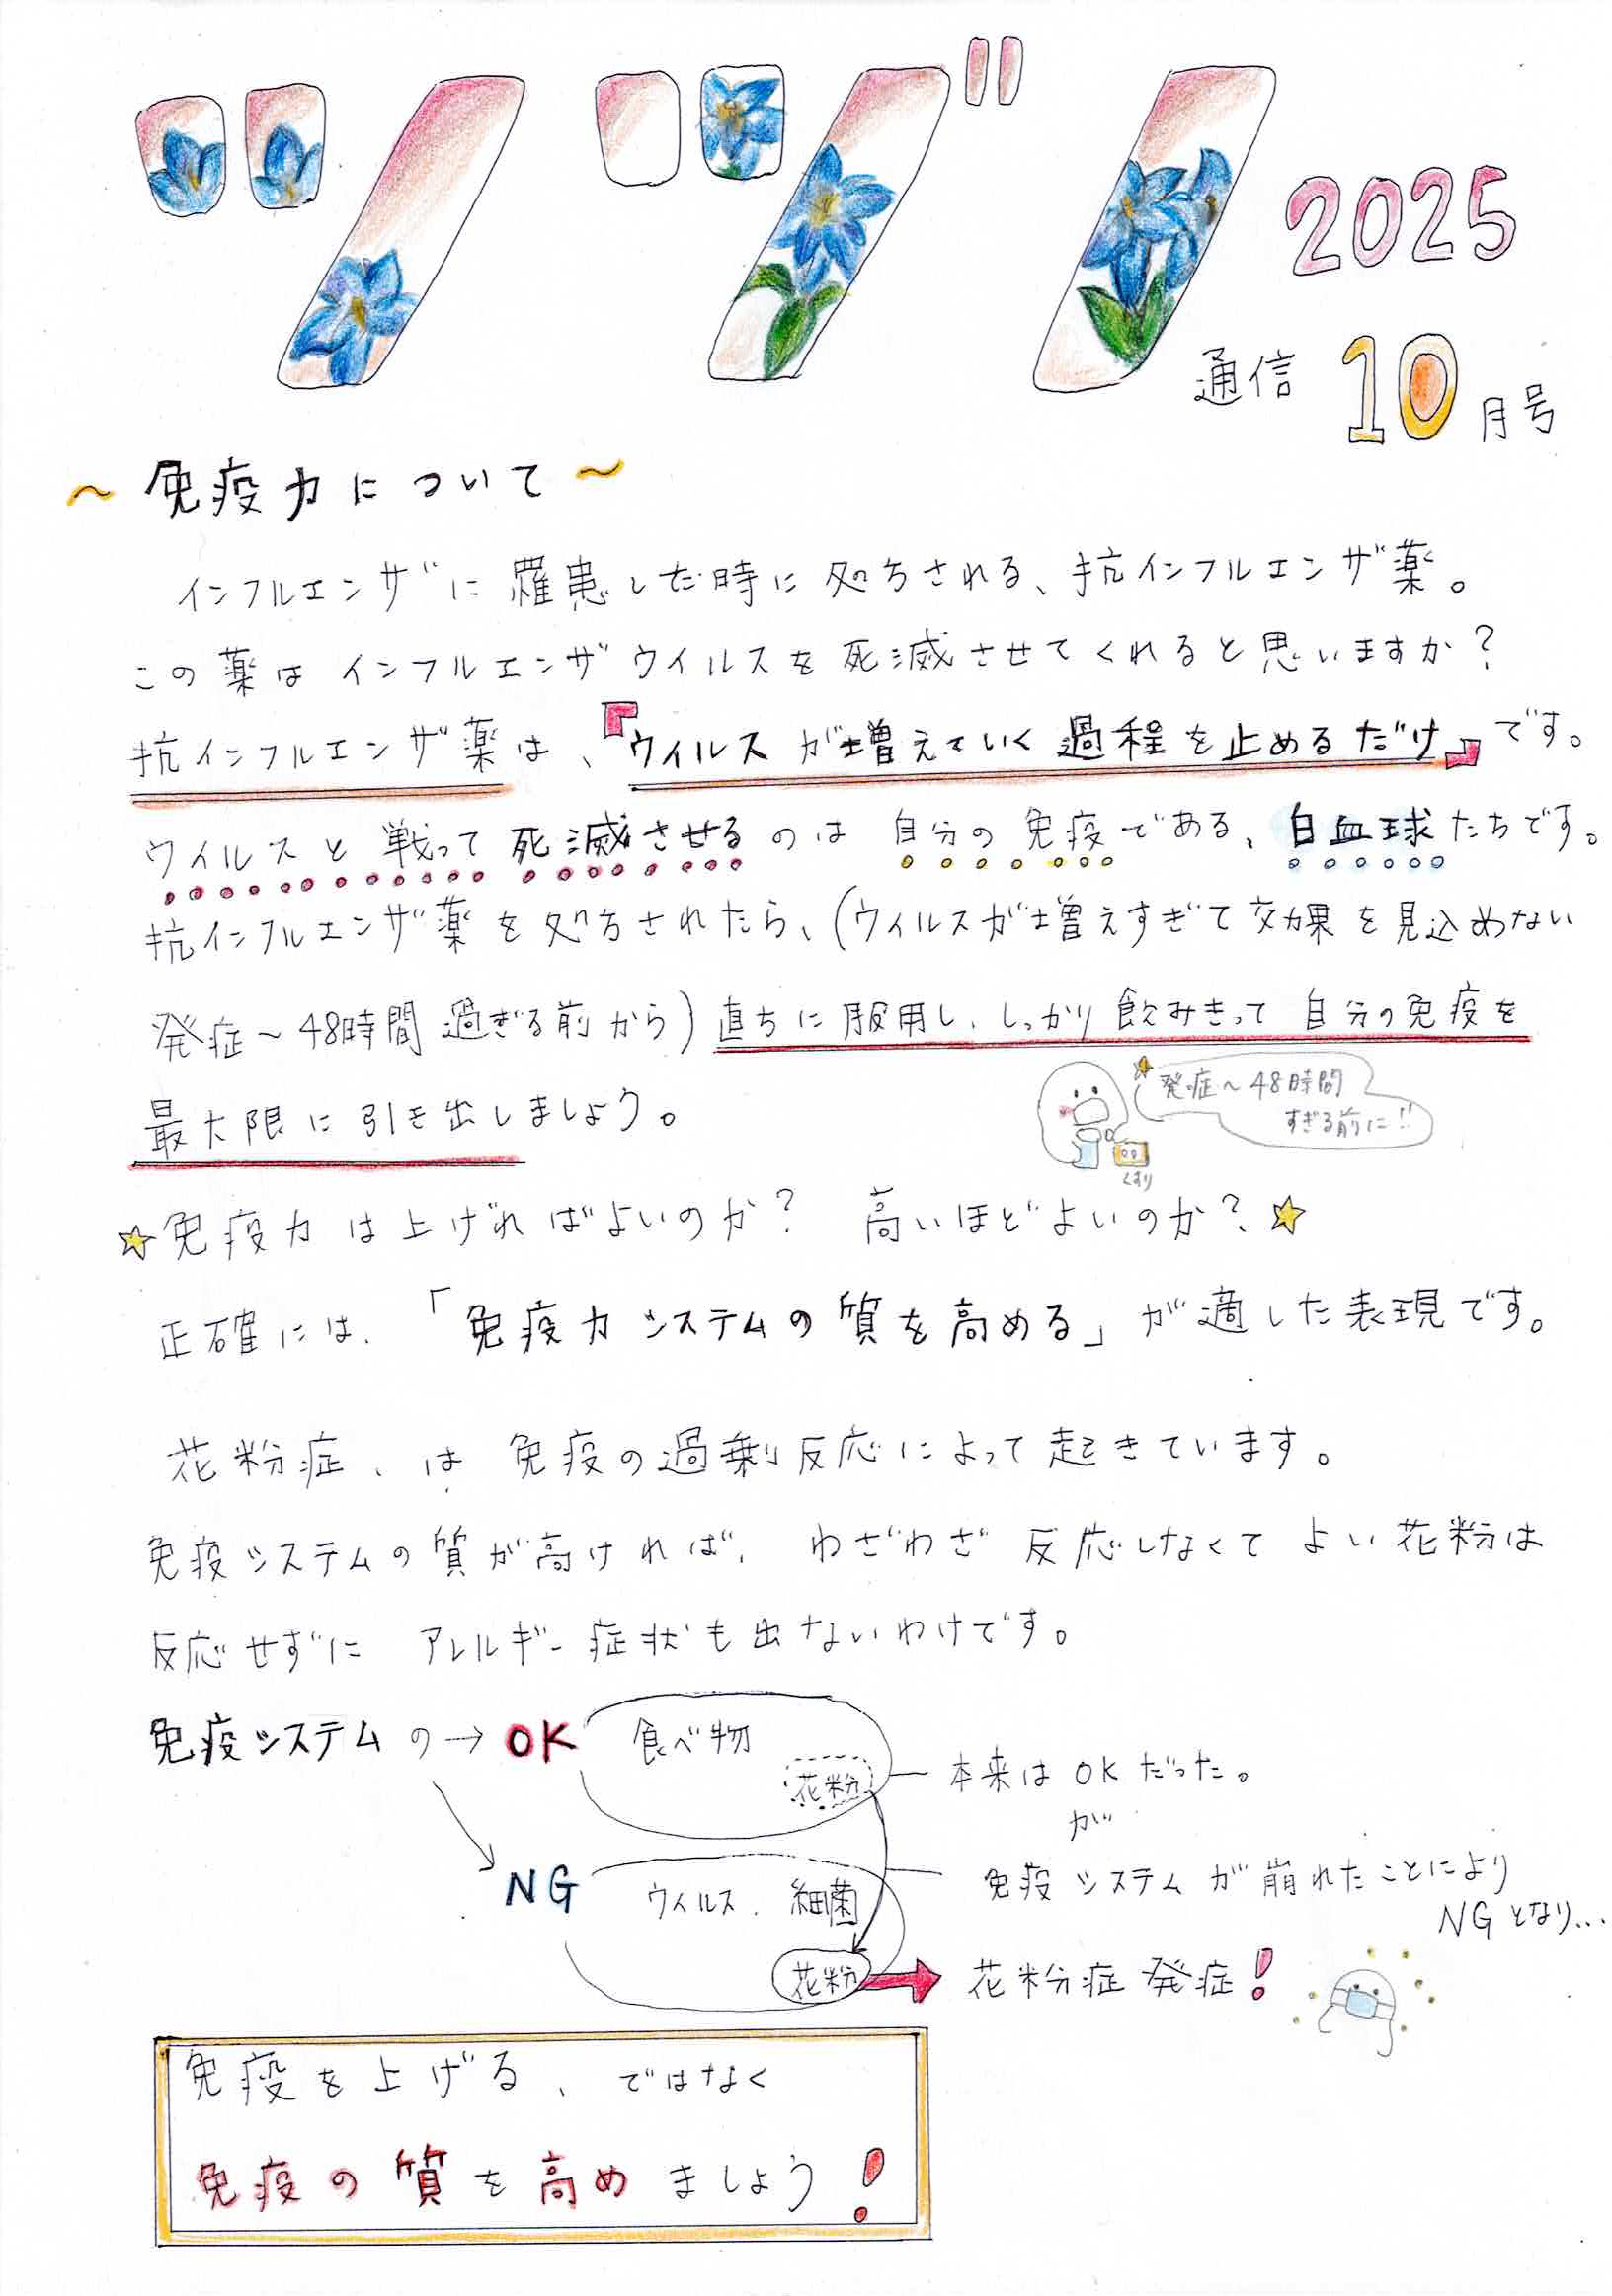 ツヅノ 2025
通信 10月号
～免疫力について～
インフルエンザに罹患した時に処方される、抗インフルエンザ薬。
この薬はインフルエンザウイルスを死滅させてくれると思いますか？
抗インフルエンザ薬は、『ウイルスが増えていく過程を止めるだけ』です。
ウイルスと戦って死滅させるのは自分の免疫である、白血球たちです。
抗インフルエンザ薬を処方されたら、(ウィルスが増えすぎて効果を見込めない
発症～48時間過ぎる前から)直ちに服用し、しっかり飲みきって自分の免疫を
最大限に引き出しましょう。
発症～48時間
すぎる前に!!
くすり
☆免疫力は上げればよいのか？ 高いほどよいのか？☆
正確には、「免疫力システムの質を高める」が適した表現です。
花粉症、は免疫の過剰反応によって起きています。
免疫システムの質が高ければ、わざわざ反応しなくてよい花粉は
反応せずにアレルギー症状も出ないわけです。
免疫システムの→OK 食べ物
花粉
本来はOKだった。
が
NG ウィルス、細菌
免疫システムが崩れたことにより
NGとなり...
花粉
花粉症発症！
免疫を上げる、ではなく
免疫の質を高めましょう！